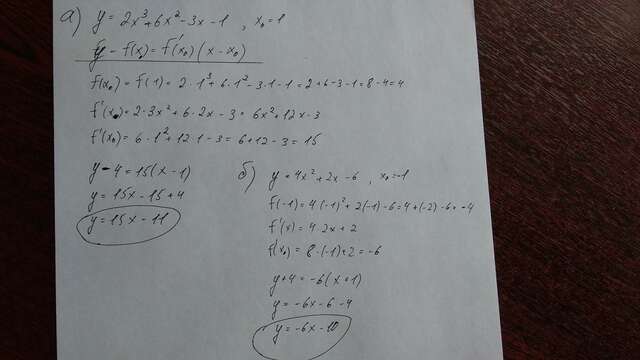 а) y = 2x³+6x²-3x-1 , x₀=1
y - f(x₀) = f'(x₀)(x-x₀)
f(x₀) = f(1) = 2·1³+6·1²-3·1-1=2+6-3-1=8-4=4
f'(x₀)=2·3x²+6·2x-3=6x²+12x-3
f'(x₀)=6·1²+12·1-3=6+12-3=15
y-4=15(x-1)
y=15x-15+4
y=15x-11
б) y=4x²+2x-6 , x₀=-1
f(-1)=4(-1)²+2(-1)-6=4+(-2)-6=-4
f'(x)=4·2x+2
f'(x₀)=8·(-1)+2=-6
y+4=-6(x+1)
y=-6x-6-4
y=-6x-10